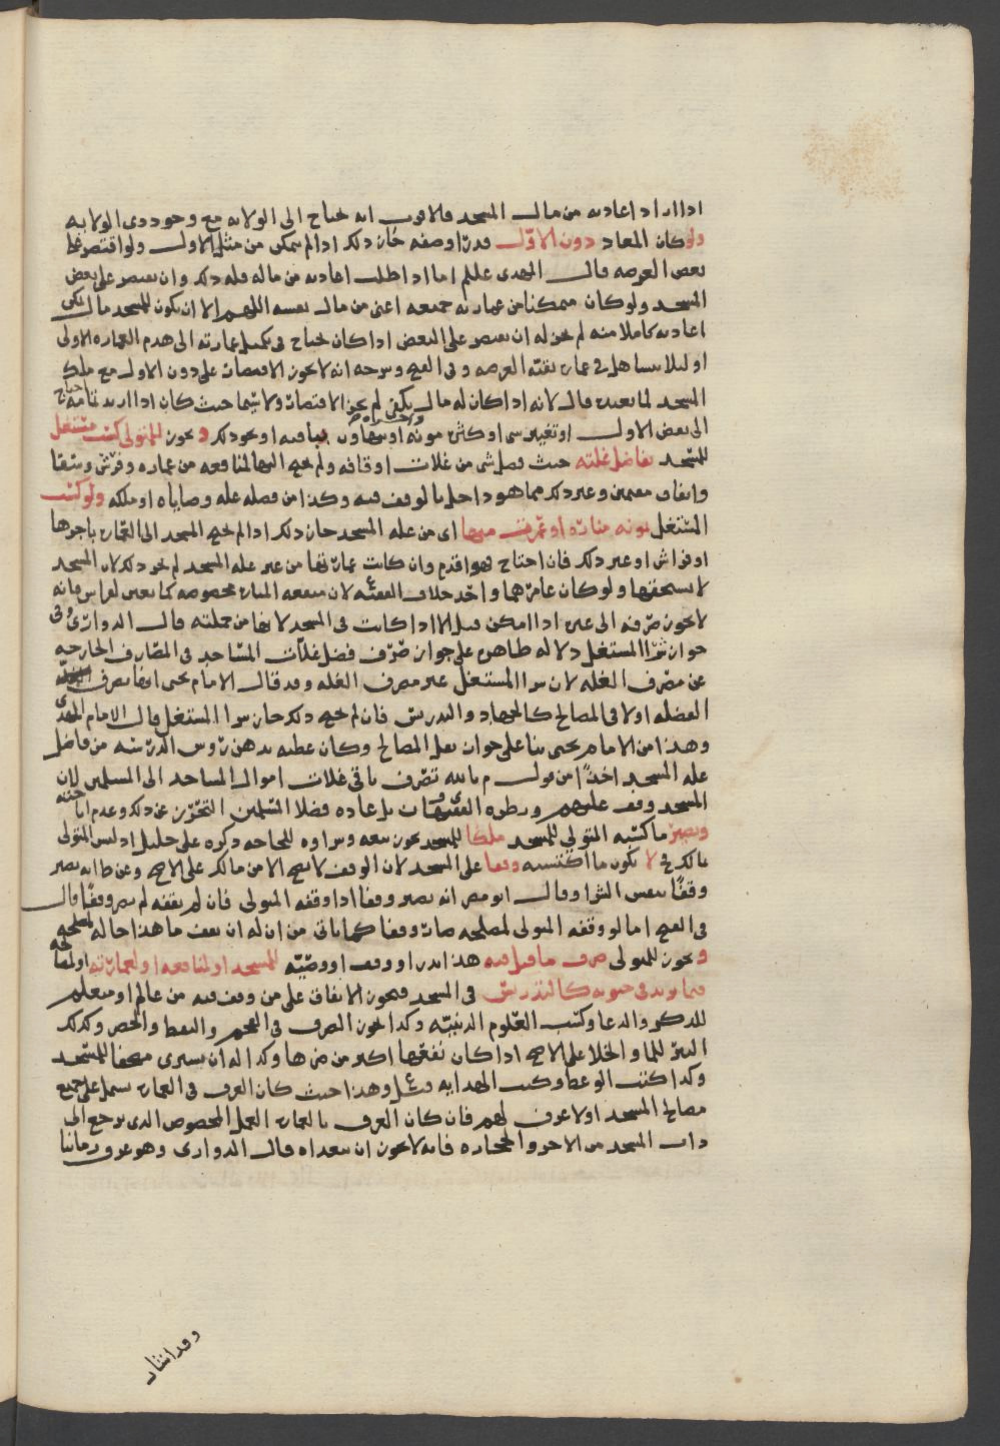 اذا اراد اعادته من مال المسجد فالاقرب انه يحتاج الى الولايه مع وجود ذى الولايه
ولو كان المعاد دون الاوّل قدرًا وصفه جاز ذلك اذا لم يتمكن من مثل الاول ولو اقتصر على
بعض العرصه قال المهدى عليلم اما اذا طلب اعادته من ماله فله ذلك وان يقتصر على بعض
المسجد ولو كان متمكنا من عمارته جميعه اعنى من مال نفسه اللهم الا ان يكون للمسجد مال يكفى
اعادته كاملا منه لم يجز له ان يقتصر على البعض اذا كان يحتاج فى تكميل عمارته الى هدم العماره الاولى
او ليلا يتساهل فى عمارة بقية العرصه وفى الغيث وتوجه انه لا يجوز الاقتصار على دون الاول مع ملك
المسجد لما يعيده قال لانه اذا كان له مال يكفى لم يجز الاقتصار ولا سيما حيث كان اذا اريد تمامه احتاج
الى نقض الاول او تغيير شى او كثرت مونه او تهاون بباقيه او نحو ذلك و يجوز للمتولى كسب مستغل
للمسجد بفاضل غلته حيث فضل شى من غلات اوقافه ولم يحتج اليها لمنافعه من عماره وفرش وسقا
وانفاق مقيمين وغير ذلك مما هو داخل بالوقف فيه وكذا من فضله غله وصاياه او ملكه ولو كسب
المستغل بمونه منارة او عُمرت منها اى من غله المسجد جاز ذلك اذا لم يحتج المسجد الى العمارة باجرها
او فراش او غير ذلك فان احتاج فهو اقدم وان كانت عمارتها من غير غله المسجد لم يجز ذلك لان المسجد
لا يستحقها ولو كان عامرهما واحد خلاف الفقيه ع لان منفعه المنارة مخصوصه كما يغير لغراس فانه
لا يجوز صرفه الى غيره اذا امكن قيل الا اذا كانت فى المسجد لانها من جملته قال الدوارى وفى
جواز شرا المستغل دلاله ظاهره على جواز صرف فضل غلات المساجد فى المصارف الخارجه
عن مصرف الغله لان شرا المستغل غير مصرف الغله وقد قال الامام يحيى ايضا يصرف
الفضله اولا فى المصالح كالجهاد والتدريس فان لم يحتج ذلك جاز شرا المستغل قال الامام المهدى
وهذا من الامام يحيى بنا على جواز نقل المصالح وكان عطيه يدهن رؤس الدرسه من فاضل
غله المسجد اخذًا من قول م بالله تصرف باقى غلات اموال المساجد الى المسلمين لان
المسجد وقف عليهم وبطوه الفقيه ف بل عاده فضلا المسلمين التحرّز عن ذلك وعدم اباحته
ويصير ما كسبه المتولى للمسجد ملكًا للمسجد يجوز بيعه وشراوه للحاجه ذكره على خليل اذ ليس المتولى
مالك فى لا يكون ما اكتسبه وقفا على المسجد لان الوقف لا يصح الا من مالك على الاصح وعن ط انه يصير
وقفًا بنفس الشرا وقال ابو مضر انه يصير وقفا اذا وقفه المتولى فان لم يقفه لم يصر وقفًا قال
فى الغيث اما لو وقفه المتولى لمصلحه صار وقفا كما ياتى من ان له ان يقف ما هذا حاله لمصلحه
و يجوز للمتولى صرف ما قيل فيه هذا نذر او وقف او وصيّه للمسجد او لمنافعه او لعمارته او لمصالحه
فيما يزيد فى حيوته كالتدريس فى المسجد فيجوز الانفاق على من وقف فيه من عالم او متعلم
للذكر والدعا وكتب العلوم الدينيّه وكذا يجوز الصرف فى المحبر والنفط والجص وكذلك
البئر للما والخلا على الاصح اذا كان نفعها اكثر من ضرها وكذا له ان يشترى مصحفا للمسجد
وكذا كتب الوعظ وكتب الهدايه قيل ع وهذا حيث كان العرف فى العمارة يشمل على جميع
مصالح المسجد او لا عرف لهم فان كان العرف بالعمارة العمل المخصوص الذى يرجع الى
ذات المسجد من الاجر والحجاره فانه لا يجوز ان يتعداه قال الدوارى وهو عرف زماننا
وقد اشار